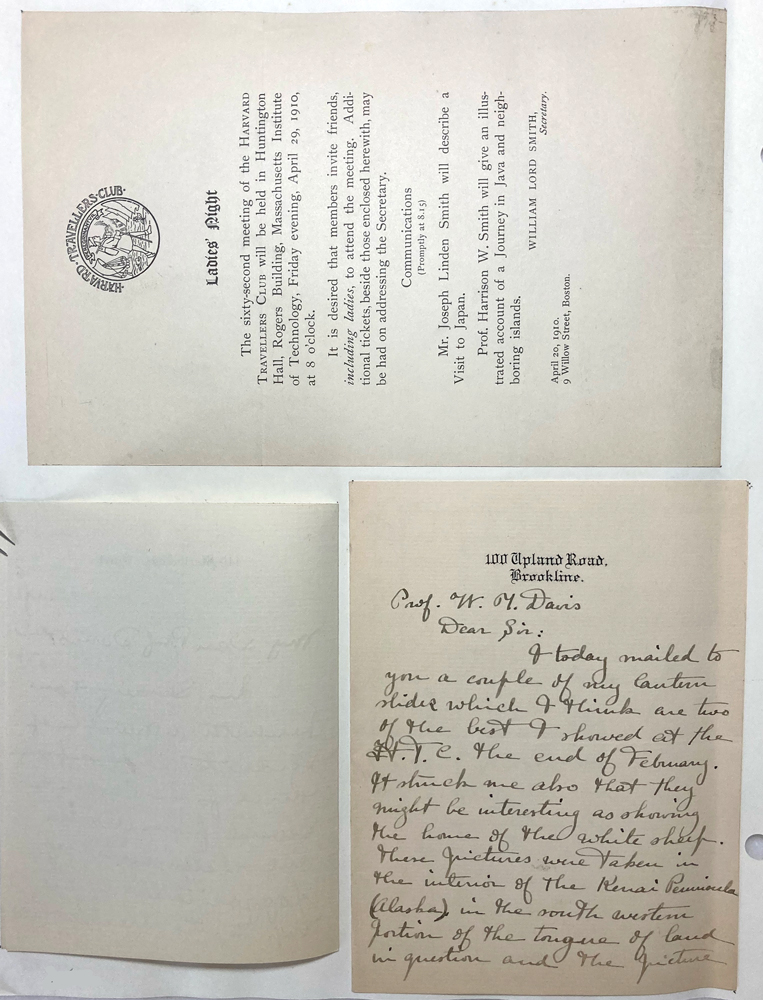 HARVARD · TRAVELLERS · CLUB ·
Ladies' Night
The sixty-second meeting of the HARVARD
TRAVELLERS CLUB will be held in Huntington
Hall, Rogers Building, Massachusetts Institute
of Technology, Friday evening, April 29, 1910,
at 8 o'clock.
It is desired that members invite friends,
including ladies, to attend the meeting. Addi-
tional tickets, beside those enclosed herewith, may
be had on addressing the Secretary.
Communications
(Promptly at 8.15)
Mr. Joseph Linden Smith will describe a
Visit to Japan.
Prof. Harrison W. Smith will give an illus-
trated account of a Journey in Java and neigh-
boring islands.
WILLIAM LORD SMITH,
Secretary.
April 20, 1910.
9 Willow Street, Boston.
100 Upland Road,
Brookline.
Prof. W. M. Davis
Dear Sir:
I today mailed to
you a couple of my lantern
slides which I think are two
of the best I showed at the
H.T.C. the end of February.
It struck me also that they
might be interesting as showing
the home of the white sheep.
These pictures were taken in
the interior of the Kenai Peninsula
(Alaska), in the south western
portion of the tongue of land
in question and the picture